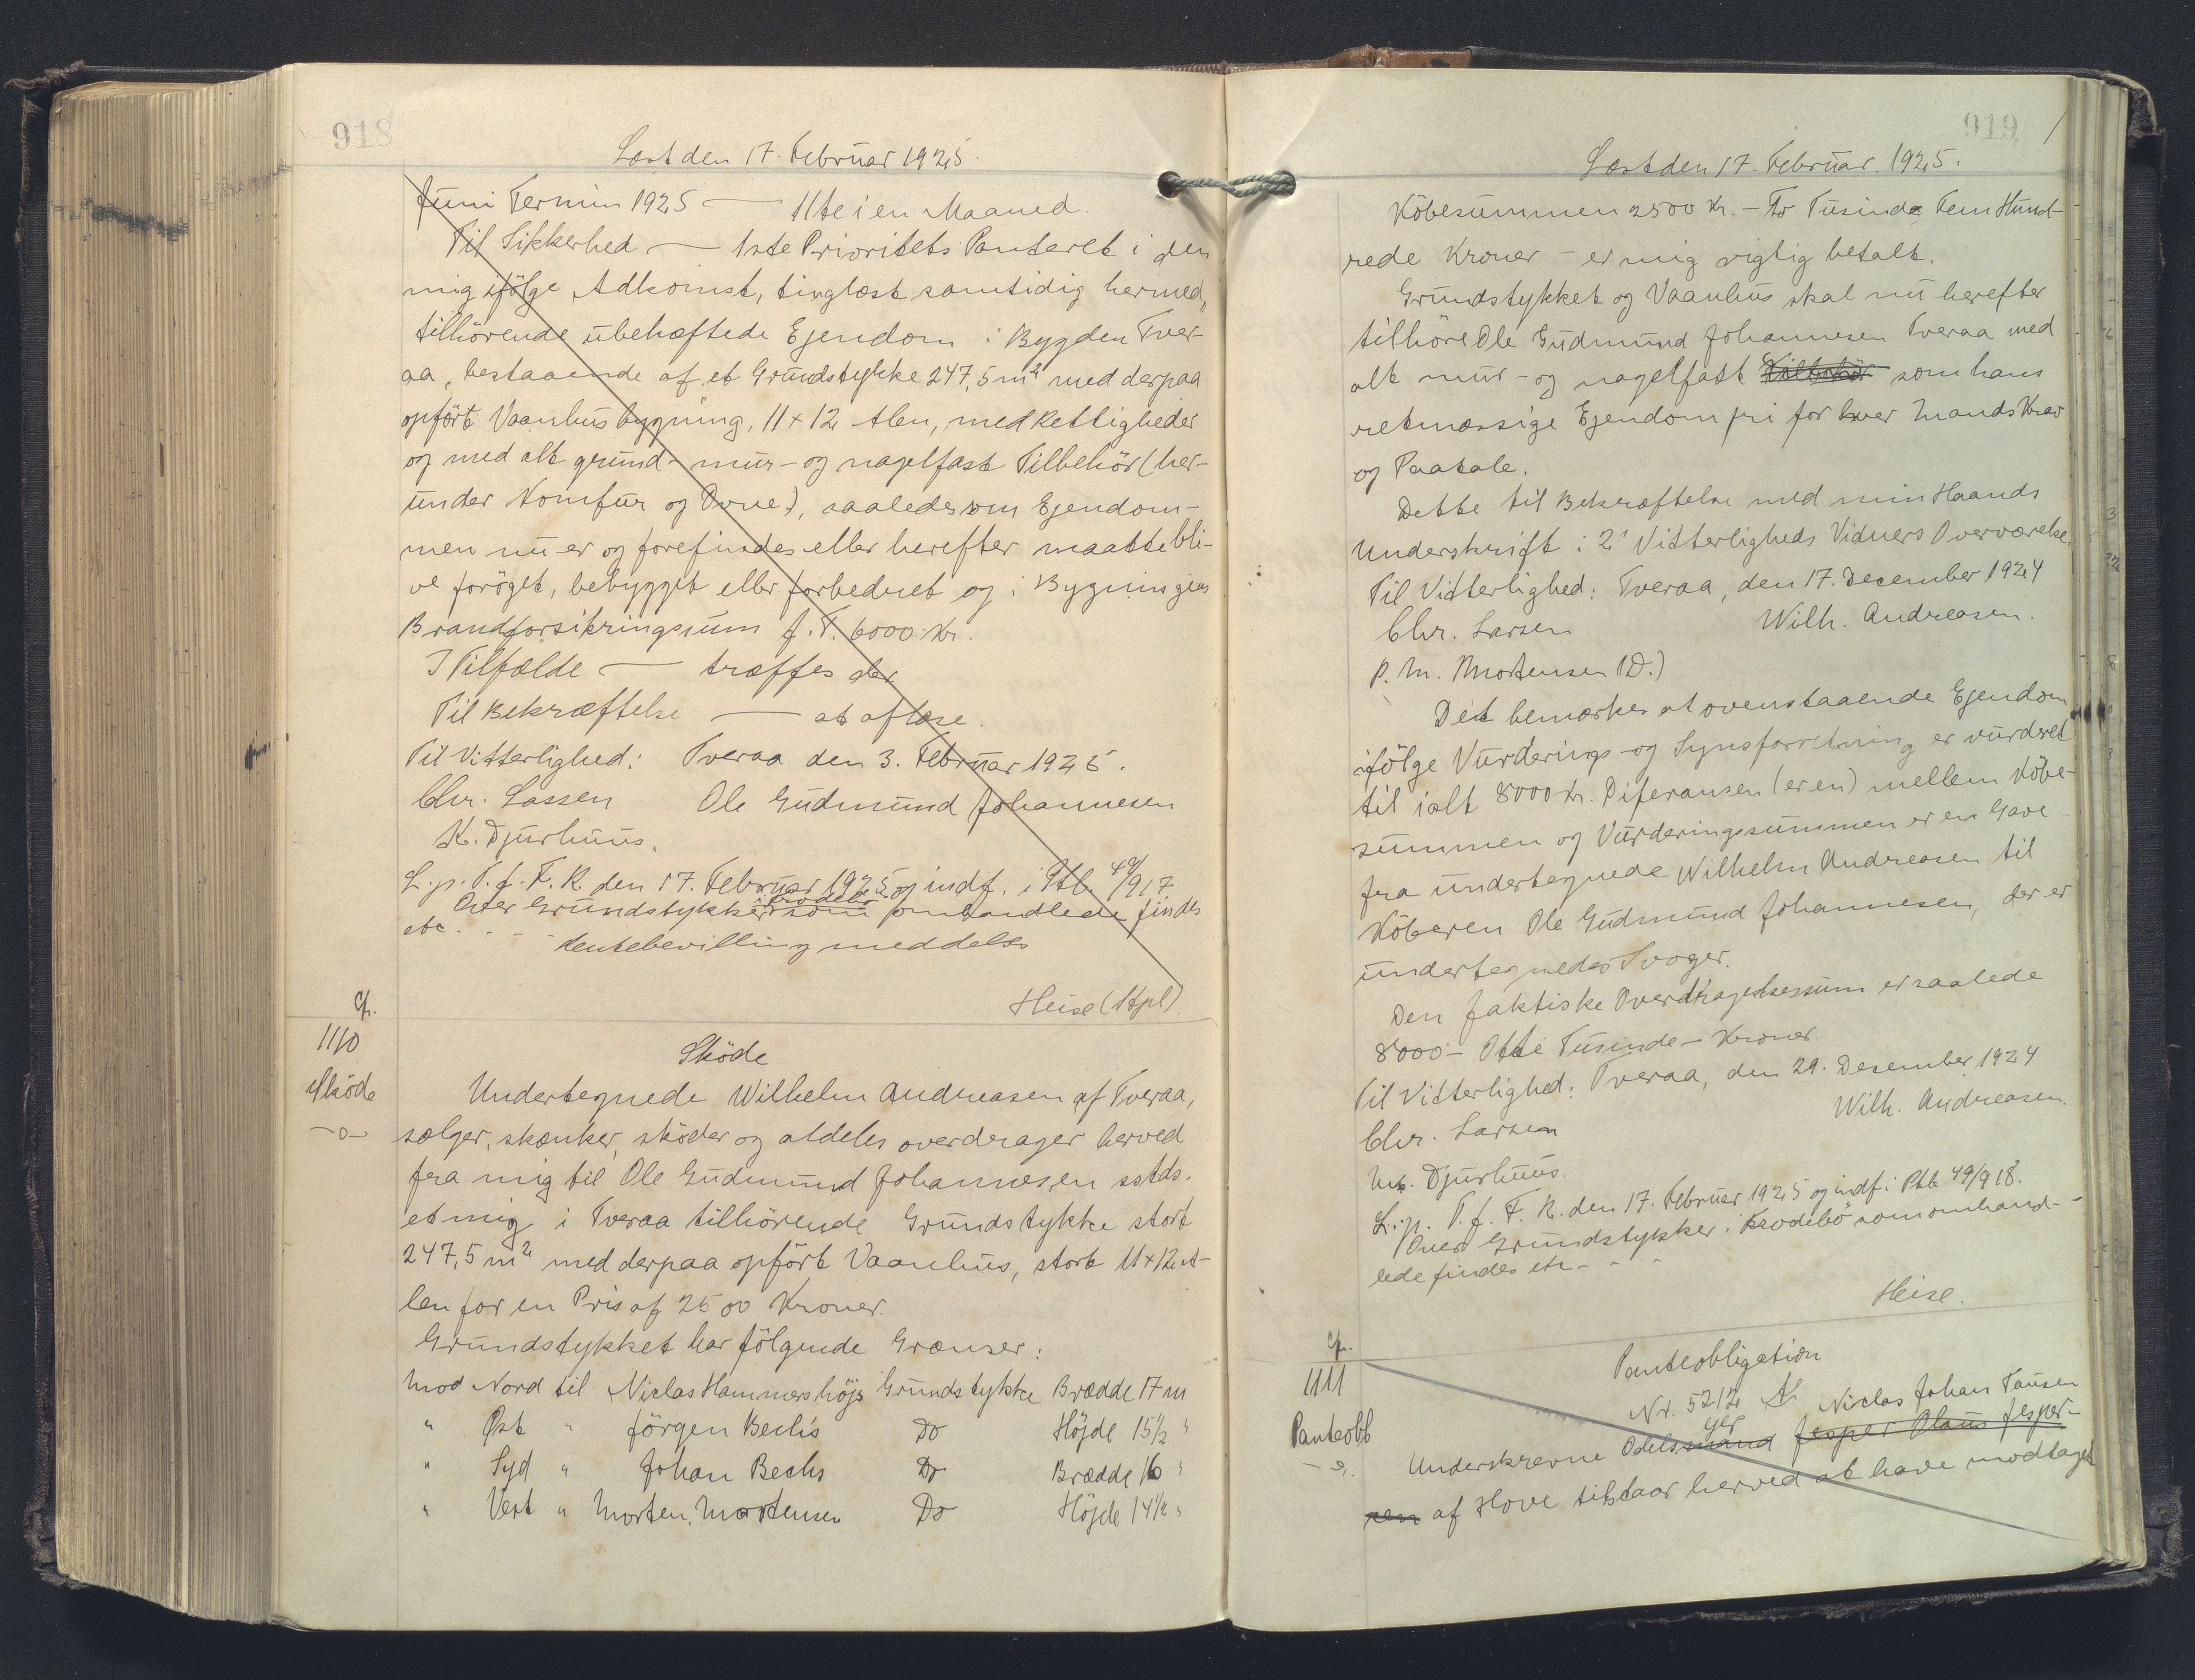 918
Læst den 17. Februar 1925.
Juni Termin 1925 — 11te i en Maaned.
Til Sikkerhed — 1ste Prioritets Panteret i den
mig ifölge Adkomst, tinglæst samtidig hermed,
tilhörende ubehæftede Ejendom i Bygden Tver-
aa, bestaaende af et Grundstykke 247,5 m² med derpaa
opfört Vaanhusbygning, 11 x 12 Alen, med Rettigheder
og med alt grund- mur- og nagelfast Tilbehör (her-
under Komfur og Ovne), saaledes som Ejendom-
men nu er og forefindes eller herefter maatte bli-
ve foröget, bebygget eller forbedret og i Bygningens
Brandforsikringssum f. T. 6000 Kr.
I Tilfælde — træffes der
Til Bekræftelse — at aflæse.
Til Vitterlighed: Tveraa den 3. Februar 1925.
Chr. Lassen Ole Gudmund Johannesen
K. Djurhuus.
L. p. T. f. F. R. den 17. Februar 1925 og indf. i Ptb. 49/917
Over Grundstykker i Krodebö som omhandlede findes
etc. - - - Rentebevilling meddeles
Heise (Kpl)
Cfr.
1110
Sköde
—o—
Sköde
Undertegnede Wilhelm Andreasen af Tveraa,
sælger, skænker, sköder og aldeles overdrager herved
fra mig til Ole Gudmund Johannesen sstds.
et mig i Tveraa tilhörende Grundstykke stort
247,5 m² med derpaa opfört Vaanhus, stort 11 x 12 A-
len for en Pris af 2500 Kroner.
Grundstykket har fölgende Grænser:
Mod Nord til Niclas Hammershöjs Grundstykke Brædde 17 m
" Öst " Jörgen Bechs Do Höjde 15½ "
" Syd " Johan Bechs Do Brædde 16 "
" Vest " Morten Mortensen Do Höjde 14½ "
919
Læst den 17. Februar 1925.
Köbesummen 2500 Kr. – To Tusinde Fem Hund-
rede Kroner – er mig rigtig betalt.
Grundstykket og Vaanhus skal nu herefter
tilhöre Ole Gudmund Johannesen Tveraa med
alt mur- og nagelfast Tilbehör som hans
retmæssige Ejendom fri for hver Mands Krav
og Paatale.
Dette til Bekræftelse med min Haands
Underskrift i 2 Vitterligheds Vidners Overværelse.
Til Vitterlighed: Tveraa, den 17. December 1924
Chr. Larsen Wilh. Andreasen.
P. M. Mortensen (D.)
Det bemærkes at ovenstaaende Ejendom
ifölge Vurderings- og Synsforretning er vurderet
til ialt 8000 Kr. Diferansen (er en) mellem Köbe-
summen og Vurderingssummen er en Gave
fra undertegnede Wilhelm Andreasen til
Köberen Ole Gudmund Johannesen, der er
undertegnedes Svoger.
Den faktiske Overdragelsessum er saalede
8000 – Otte Tusinde – Kroner.
Til Vitterlighed: Tveraa, den 29. Desember 1924
Chr. Larsen Wilh. Andreasen.
M. Djurhuus.
L. p. T. f. F. R. den 17. Februar 1925 og indf. i Ptb. 49/918.
Over Grundstykker i Krodebö som omhand-
lede findes etc - - -
Heise.
Cfr.
1111
Panteobl
Panteobligation
Nr. 5212
ger Niclas Johan Jansen
Underskrevne Odelsmand Jesper Olaus Jesper-
sen af Hove tilstaar herved at have modtaget